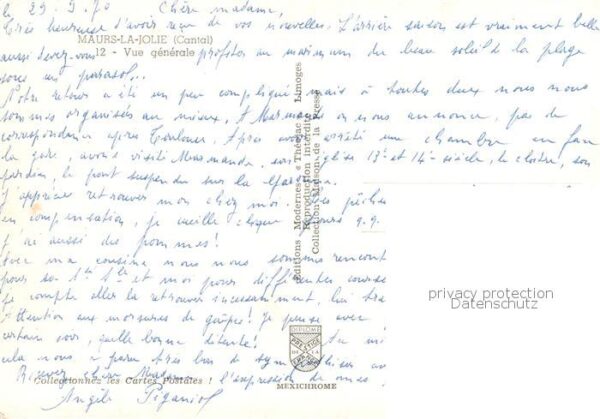 le 29.9.70 Chère madame,
Très heureuse d'avoir reçu de vos nouvelles. L'arrière saison est vraiment belle
MAURS-LA-JOLIE (Cantal)
12 - Vue générale
aussi devez-vous profiter au maximum du beau soleil de la plage
sous un parasol...
Notre retour a été un peu compliqué mais à toutes deux nous nous
sommes organisées au mieux. A Marmande on nous annonce, pas de
correspondance après Toulouse. Après avoir arrêté une chambre en face
la gare, avons visité Marmande, son église 13e et 14e siècle, le cloître, son
jardin, le pont suspendu sur la Garonne.
J'apprécie retrouver mon chez moi. Les pêches
en compensation, je cueille chaque jours
j'ai aussi des pommes!
Avec ma cousine nous nous sommes rencont
pour sa et moi pour différentes courses
je compte aller la retrouver incessamment, lui
Attention aux morsures de guêpes! Je pense avec
certain soir, quelle bonne détente! Au
cela nous a paru très bas de
Recevez chère Madame l'expression de mes
Angèle Piganiol
Editions Modernes « Théojac » - Limoges
Reproduction Interdite
Collection Maison de la Presse
privacy protection
Datenschutz
DIPLOME
PRESTIGE
Collectionnez les Cartes Postales !
MEXICHROME